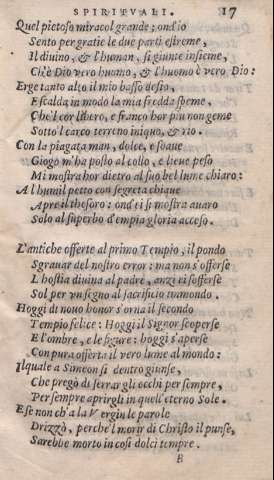 SPIRITVALI. 17
Quel pietoso miracol grande; ond'io
Sento per gratie le due parti estreme,
Il diuino, & l'human, si giunte insieme,
Ch'è Dio vero huomo, & l'huomo è vero Dio:
Erge tant'alto il mio basso desio,
E scalda in modo la mia fredda speme,
Che'l cor libero, e franco hor piu non geme
Sotto l'carco terreno iniquo, & rio.
Con la piagata man, dolce, e soaue
Giogo m'ha posto al collo, e lieue peso
Mi mostra hor dietro al suo bel lume chiaro:
A l'humil petto con segreta chiaue
Apre il thesoro: ond'ei si mostra auaro
Solo al superbo d'empia gloria acceso.
L'antiche offerte al primo Tempio, il pondo
Sgrauar del nostro error: ma non s'offerse
L'hostia diuina al padre, anzi ei sofferse
Sol per vn segno al sacrificio immondo.
Hoggi di nouo honor s'orna il secondo
Tempio felice: Hoggi il Signor scoperse
E l'ombre, e le figure: hoggi s'aperse
Con pura offerta il vero lume al mondo:
Ilquale a Simeon sì dentro giunse,
Che pregò di serrar gli occhi per sempre,
Per sempre aprirgli in quell'eterno Sole.
E se non ch'a la Vergin le parole
Drizzò, perche'l morir di Christo il punse,
Sarebbe morto in così dolci tempre.
B